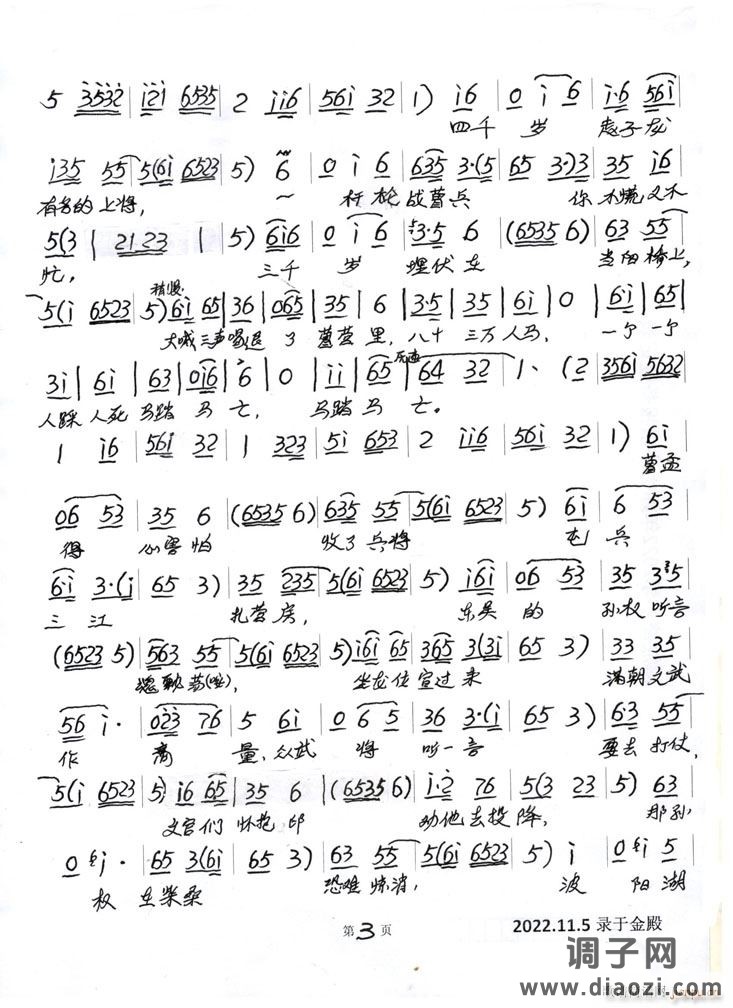 5 3532 | i2i 6535 | 2 ii6 | 56i 32 | 1) i6 | 0 i 6 | i·6 56i |
四千 岁 赵子龙
i35 55 | 5(6i 6523 | 5) 6 | 0 i 6 | 635 3·(5 | 65 3·)3 | 35 i6 |
有名的上将, 一 杆枪战曹兵 你不慌又不
5(3 | 2123 | 5) 6i6 | 0 i 6 | 3·5 6 | (6535 6) | 63 55 |
忙, 三千 岁 埋伏在 当阳桥上,
5(i 6523 | 5) 6i 65 | 36 | 065 | 35 | 6 | 3·5 | 35 | 6i | 0 | 6·i | 65 |
稍慢
大喊三声喝退 了 曹营里, 八十 三万人马, 一个一个
3i | 6i | 63 | 0i6 | 6 | 0 | ii | 65 | 64 32 | 1· (2 | 356i 5632 |
人踩人死马踏 马 亡, 马踏马 亡。
1 i6 | 56i 32 | 1 323 | 5i 653 | 2 ii6 | 56i 32 | 1) 6i |
曹孟
06 53 | 35 6 | (6535 6) | 635 55 | 5(6i 6523 | 5) 6i | 6 53 |
得 心害怕 收了兵将 屯 兵
6·i 3·(i | 65 3) | 35 235 | 5(6i 6523 | 5) i6i | 06 53 | 35 3 5 |
三 江 扎营房, 东吴 的 孙权听音
(6523 5) | 563 55 | 5(6i 6523 | 5) i6i 65 | 365 3(3i | 65 3) | 33 35 |
坐龙位宣过来 满朝文武
56 i· | 023 76 | 5 6i | 0 6 5 | 36 3·(i | 65 3) | 6·3 55 |
作 商 量,众武 将 听一音 要去打仗,
5(i 6523 | 5) i6 65 | 35 6 | (6535 6) | i·2 76 | 5(3 23 | 5) 63 |
文官们怀抱印 劝他去投降, 那孙
0 i· | 65 3(6i | 65 3) | 63 55 | 5(6i 6523 | 5) i | 0 i 5 |
权 在柴桑 恐难惊消, 波 阳湖
第3页
2022.11.5 录于金殿
调子网
www.diaozi.com